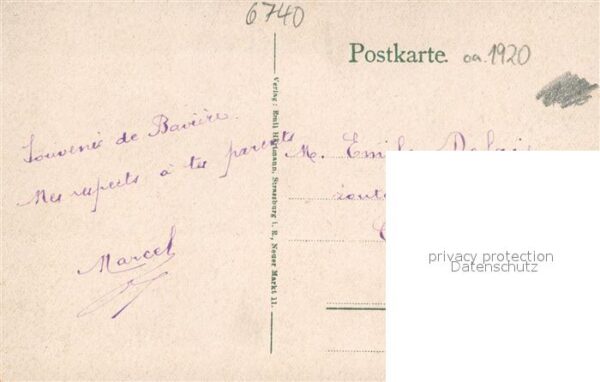 6740
Postkarte.
ca. 1920
Souvenir de Bavière.
Mes respects à tes parents
Marcel
Verlag: Emil Hartmann, Strassburg i. E., Neuer Markt 11.
M. Emile
route
privacy protection
Datenschutz